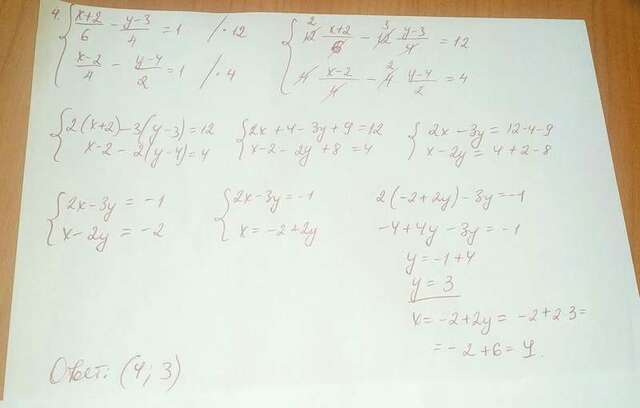 4. { (x+2)/6 - (y-3)/4 = 1 /·12
(x-2)/4 - (y-4)/2 = 1 /·4
{ 12 (x+2)/6 - 12 (y-3)/4 = 12
4 (x-2)/4 - 4 (y-4)/2 = 4
{ 2(x+2)-3(y-3)=12
x-2-2(y-4)=4
{ 2x+4-3y+9=12
x-2-2y+8=4
{ 2x-3y=12-4-9
x-2y=4+2-8
{ 2x-3y=-1
x-2y=-2
{ 2x-3y=-1
x=-2+2y
2(-2+2y)-3y=-1
-4+4y-3y=-1
y=-1+4
y=3
x=-2+2y=-2+2·3=
=-2+6=4.
Ответ: (4; 3)